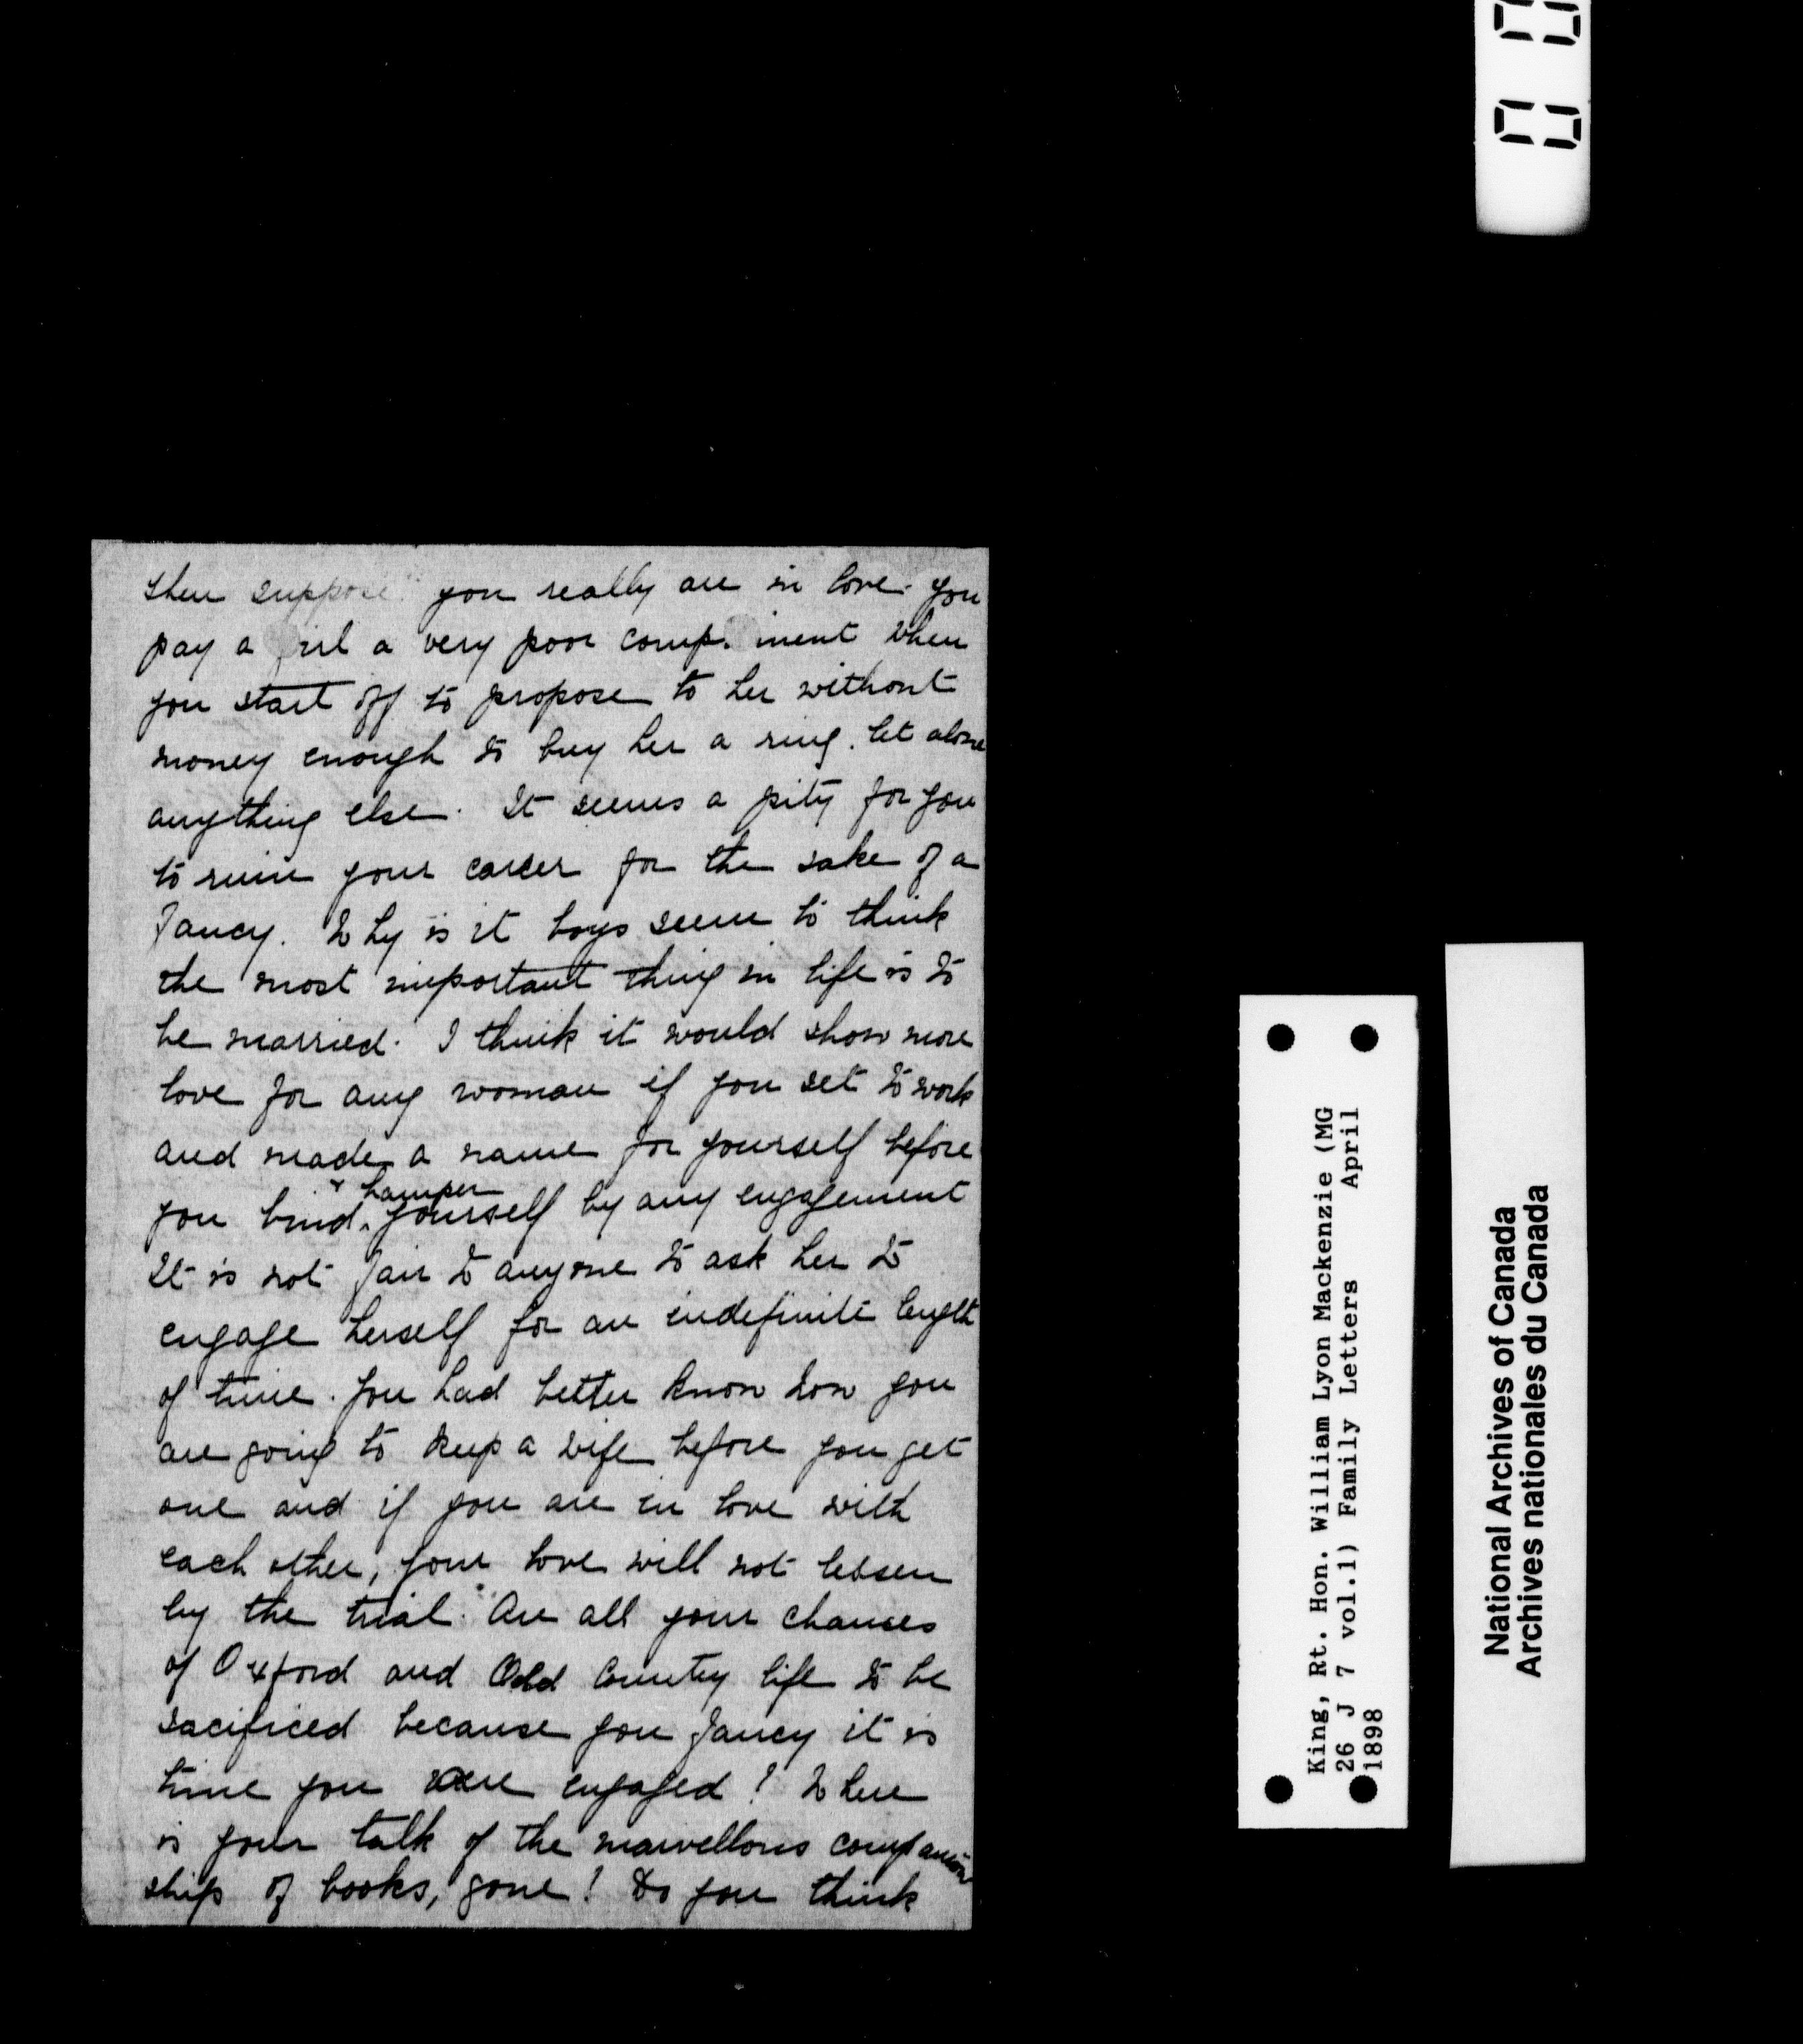 then suppose you really are in love. You
pay a girl a very poor compliment when
you start off to propose to her without
money enough to buy her a ring. let alone
anything else. It seems a pity for you
to ruin your career for the sake of a
fancy. Why is it boys seem to think
the most important thing in life is to
be married. I think it would show more
love for any woman if you set to work
and made a name for yourself before
& hamper
you bind yourself by any engagement
It is not fair to anyone to ask her to
engage herself for an indefinite length
of time. You had better know how you
are going to keep a wife before you get
one and if you are in love with
each other, your love will not lessen
by the trial. Are all your chances
of Oxford and Old Country life to be
sacificed because you fancy it is
time you were engaged? Where
is your talk of the marvellous companion
ship of books, gone! Do you think
King, Rt. Hon. William Lyon Mackenzie (MG
26 J 7 vol.1) Family Letters April
1898
National Archives of Canada
Archives nationales du Canada